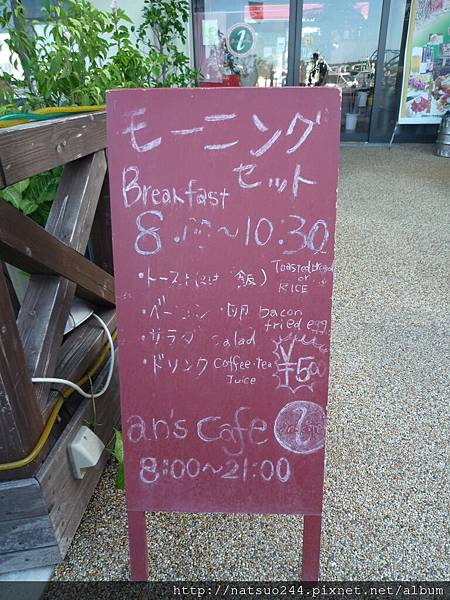 モーニング
セット
Breakfast
8:00~10:30
・トースト(又は ご飯) Toasted bread
or
RICE
・ベーコン・卵 bacon
fried egg
・サラダ salad
・ドリンク coffee・tea
Juice
¥500
an's cafe
8:00~21:00
http://natsuo244.pixnet.net/album